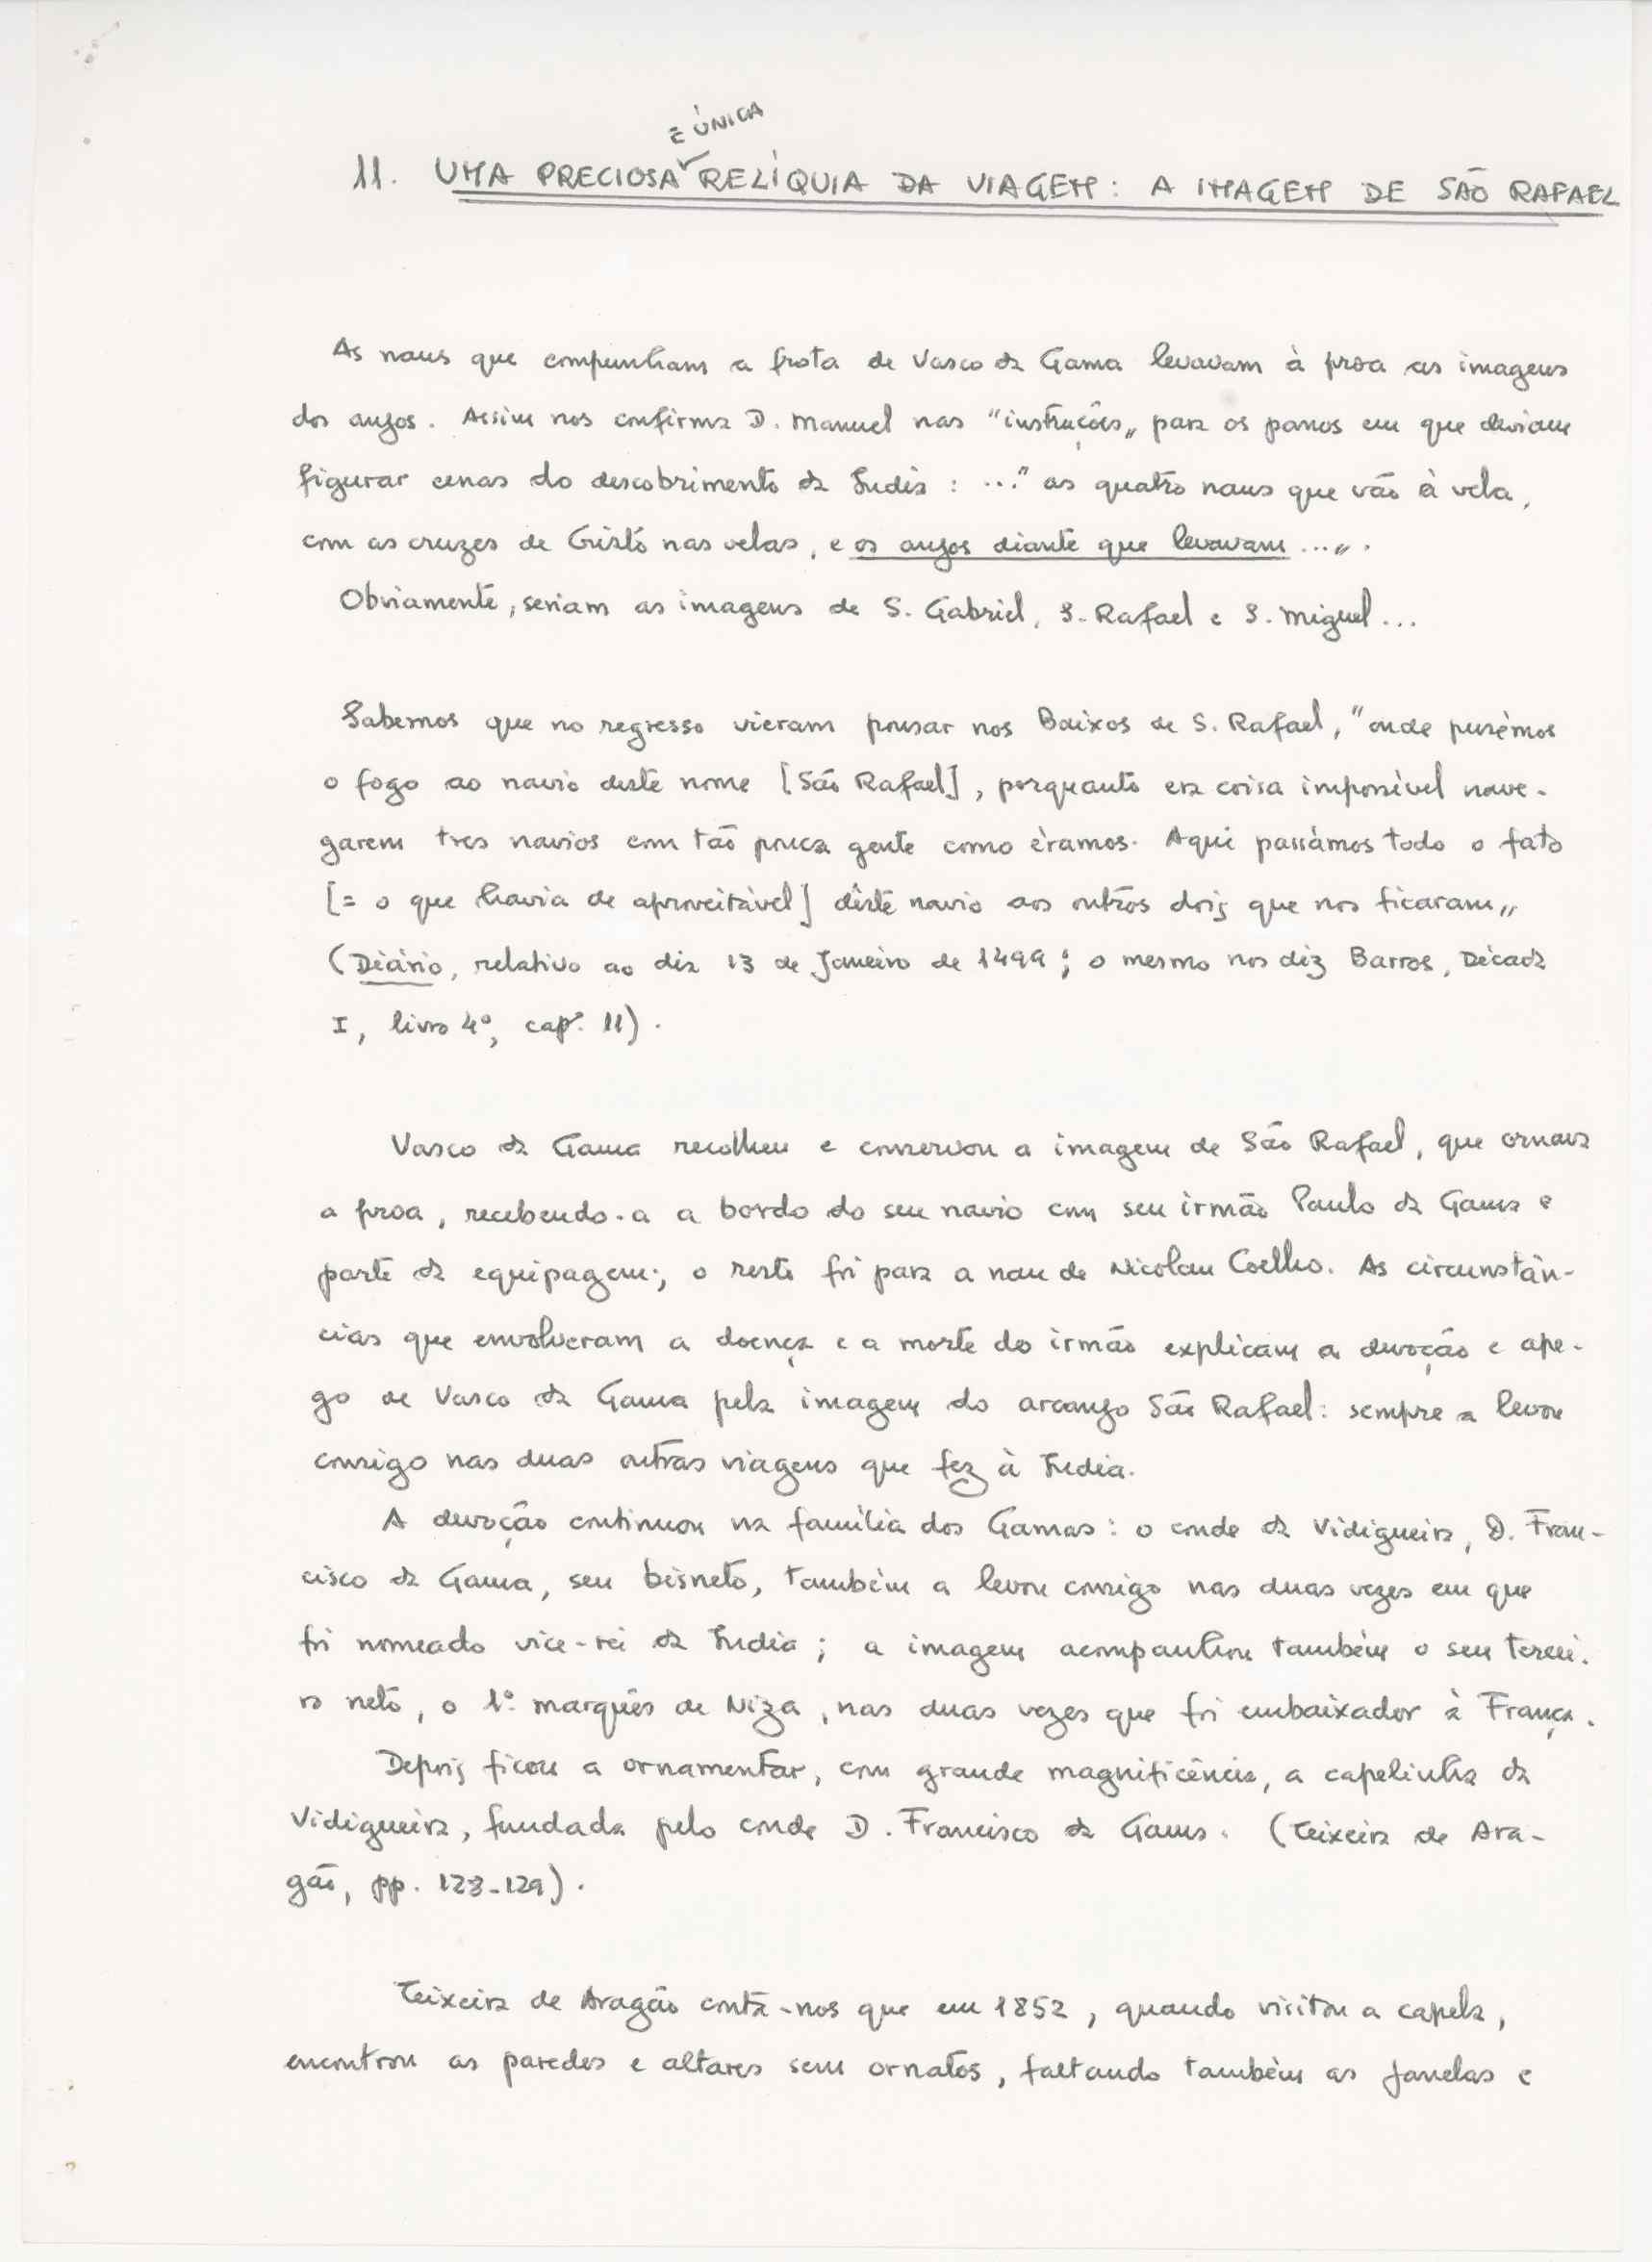 E ÚNICA
11. UMA PRECIOSA RELÍQUIA DA VIAGEM: A IMAGEM DE SÃO RAFAEL
As naus que compunham a frota de Vasco da Gama levavam à proa as imagens
dos anjos. Assim nos confirma D. Manuel nas "instruções„ para os panos em que deviam
figurar cenas do descobrimento da Índia: ..." as quatro naus que vão à vela,
com as cruzes de Cristo nas velas, e os anjos diante que levavam ...„.
Obviamente, seriam as imagens de S. Gabriel, S. Rafael e S. Miguel...
Sabemos que no regresso vieram pousar nos Baixos de S. Rafael, "onde pusémos
o fogo ao navio deste nome [São Rafael], porquanto era coisa impossível nave-
garem tres navios com tão pouca gente como éramos. Aqui passámos todo o fato
[= o que havia de aproveitável] dêste navio aos outros dois que nos ficaram„
(Diário, relativo ao dia 13 de Janeiro de 1499; o mesmo nos diz Barros, Década
I, livro 4º, capº. 11).
Vasco da Gama recolheu e conservou a imagem de São Rafael, que ornava
a proa, recebendo-a a bordo do seu navio com seu irmão Paulo da Gama e
parte da equipagem; o resto foi para a nau de Nicolau Coelho. As circunstân-
cias que envolveram a doença e a morte do irmão explicam a devoção e ape-
go de Vasco da Gama pela imagem do arcanjo São Rafael: sempre a levou
consigo nas duas outras viagens que fez à Índia.
A devoção continuou na família dos Gamas: o conde da Vidigueira, D. Fran-
cisco da Gama, seu bisneto, também a levou consigo nas duas vezes em que
foi nomeado vice-rei da Índia; a imagem acompanhou também o seu tercei-
ro neto, o 1º. marquês de Niza, nas duas vezes que foi embaixador à França.
Depois ficou a ornamentar, com grande magnificência, a capelinha da
Vidigueira, fundada pelo conde D. Francisco da Gama. (Teixeira de Ara-
gão, pp. 123-129).
Teixeira de Aragão conta-nos que em 1852, quando visitou a capela,
encontrou as paredes e altares sem ornatos, faltando também as janelas e